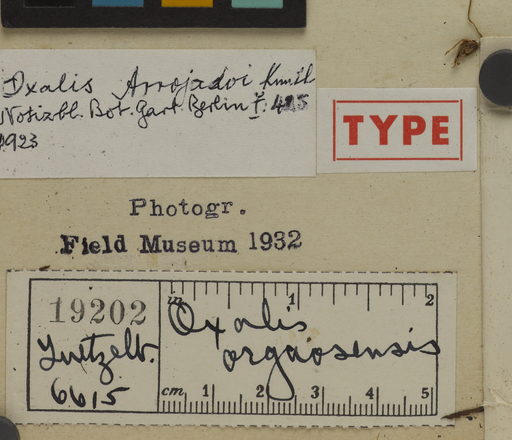 Oxalis Arrojadoi Knuth
Notizbl. Bot. Gart. Berlin F. 415
1923
TYPE
Photogr.
Field Museum 1932
19202
Luetzelb.
6615
m 1 2
Oxalis
orgaosensis
cm 1 2 3 4 5